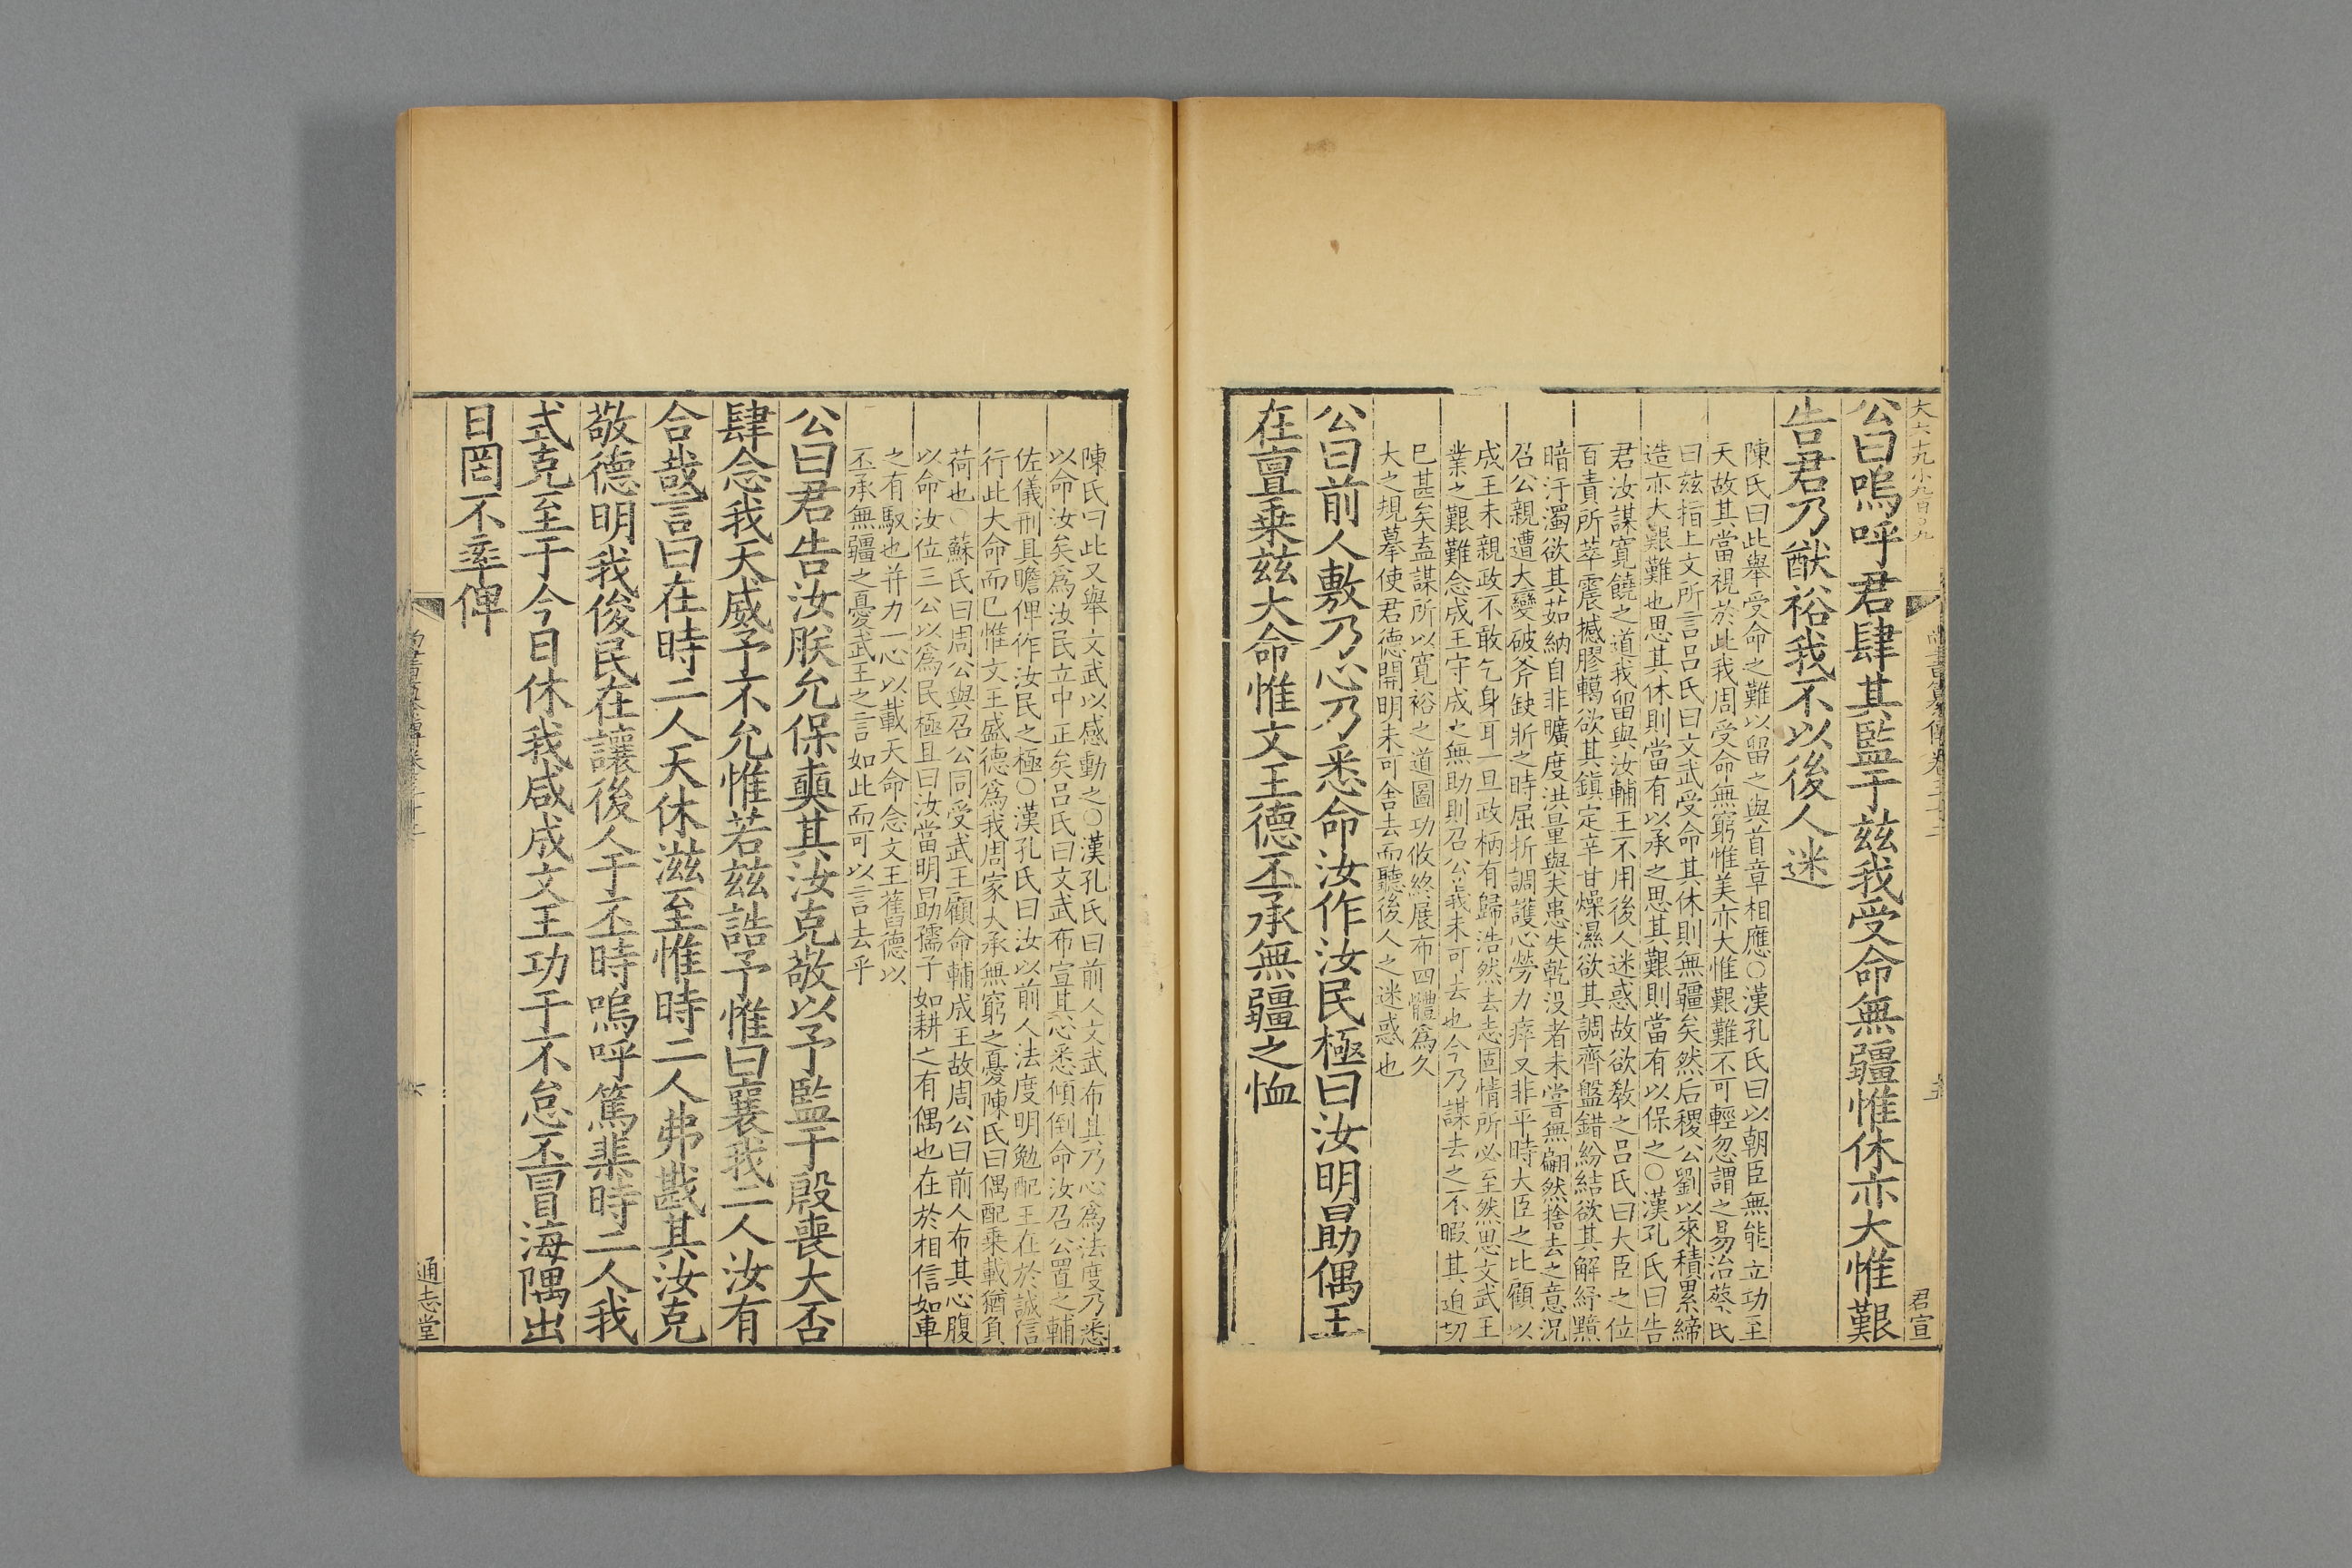 大六十九小九百〇九
君宣
公曰嗚呼君肆其監于玆我受命無疆惟休亦大惟艱
告君乃猷裕我不以後人迷
陳氏曰此舉受命之難以留之與首章相應○漢孔氏曰以朝臣無能立功至
天故其當視於此我周受命無窮惟美亦大惟艱難不可輕忽謂之易治蔡氏
曰玆指上文所言呂氏曰文武受命其休則無疆矣然后稷公劉以來積累締
造亦大艱難也思其休則當有以承之思其艱則當有以保之○漢孔氏曰告
君汝謀寛饒之道我留與汝輔王不用後人迷惑故欲敎之呂氏曰大臣之位
百責所萃震撼膠轕欲其鎭定辛甘燥濕欲其調齊盤錯紛結欲其解紓黯
暗汙濁欲其茹納自非曠度洪量與夫患失乾没者未嘗無翩然捨去之意況
召公親遭大變破斧缺斨之時屈折調護心勞力瘁又非平時大臣之比顧以
成王未親政不敢乞身耳一旦政柄有歸浩然去志固情所必至然思文武王
業之艱難念成王守成之無助則召公義未可去也今乃謀去之不暇其迫切
已甚矣盍謀所以寛裕之道圖功攸終展布四體爲久
大之規摹使君德開明未可舍去而聽後人之迷惑也
公曰前人敷乃心乃悉命汝作汝民極曰汝明勗偶王
在亶乗玆大命惟文王德丕承無疆之恤
陳氏曰此又舉文武以感動之○漢孔氏曰前人文武布其乃心爲法度乃悉
以命汝矣爲汝民立中正矣呂氏曰文武布宣其心悉傾倒命汝召公置之輔
佐儀刑具瞻俾作汝民之極○漢孔氏曰汝以前人法度明勉配王在於誠信
行此大命而已惟文王盛德爲我周家大承無窮之憂陳氏曰偶配乗載猶負
荷也○蘇氏曰周公與召公同受武王顧命輔成王故周公曰前人布其心腹
以命汝位三公以爲民極且曰汝當明勗孺子如耕之有偶也在於相信如車
之有馭也并力一心以載天命念文王舊德以
丕承無疆之憂武王之言如此而可以言去乎
公曰君告汝朕允保奭其汝克敬以予監于殷喪大否
肆念我天威予不允惟若玆誥予惟曰襄我二人汝有
合哉言曰在時二人天休滋至惟時二人弗戡其汝克
敬德明我俊民在讓後人于丕時嗚呼篤棐時二人我
式克至于今日休我咸成文王功于不怠丕冒海隅出
日罔不率俾
通志堂